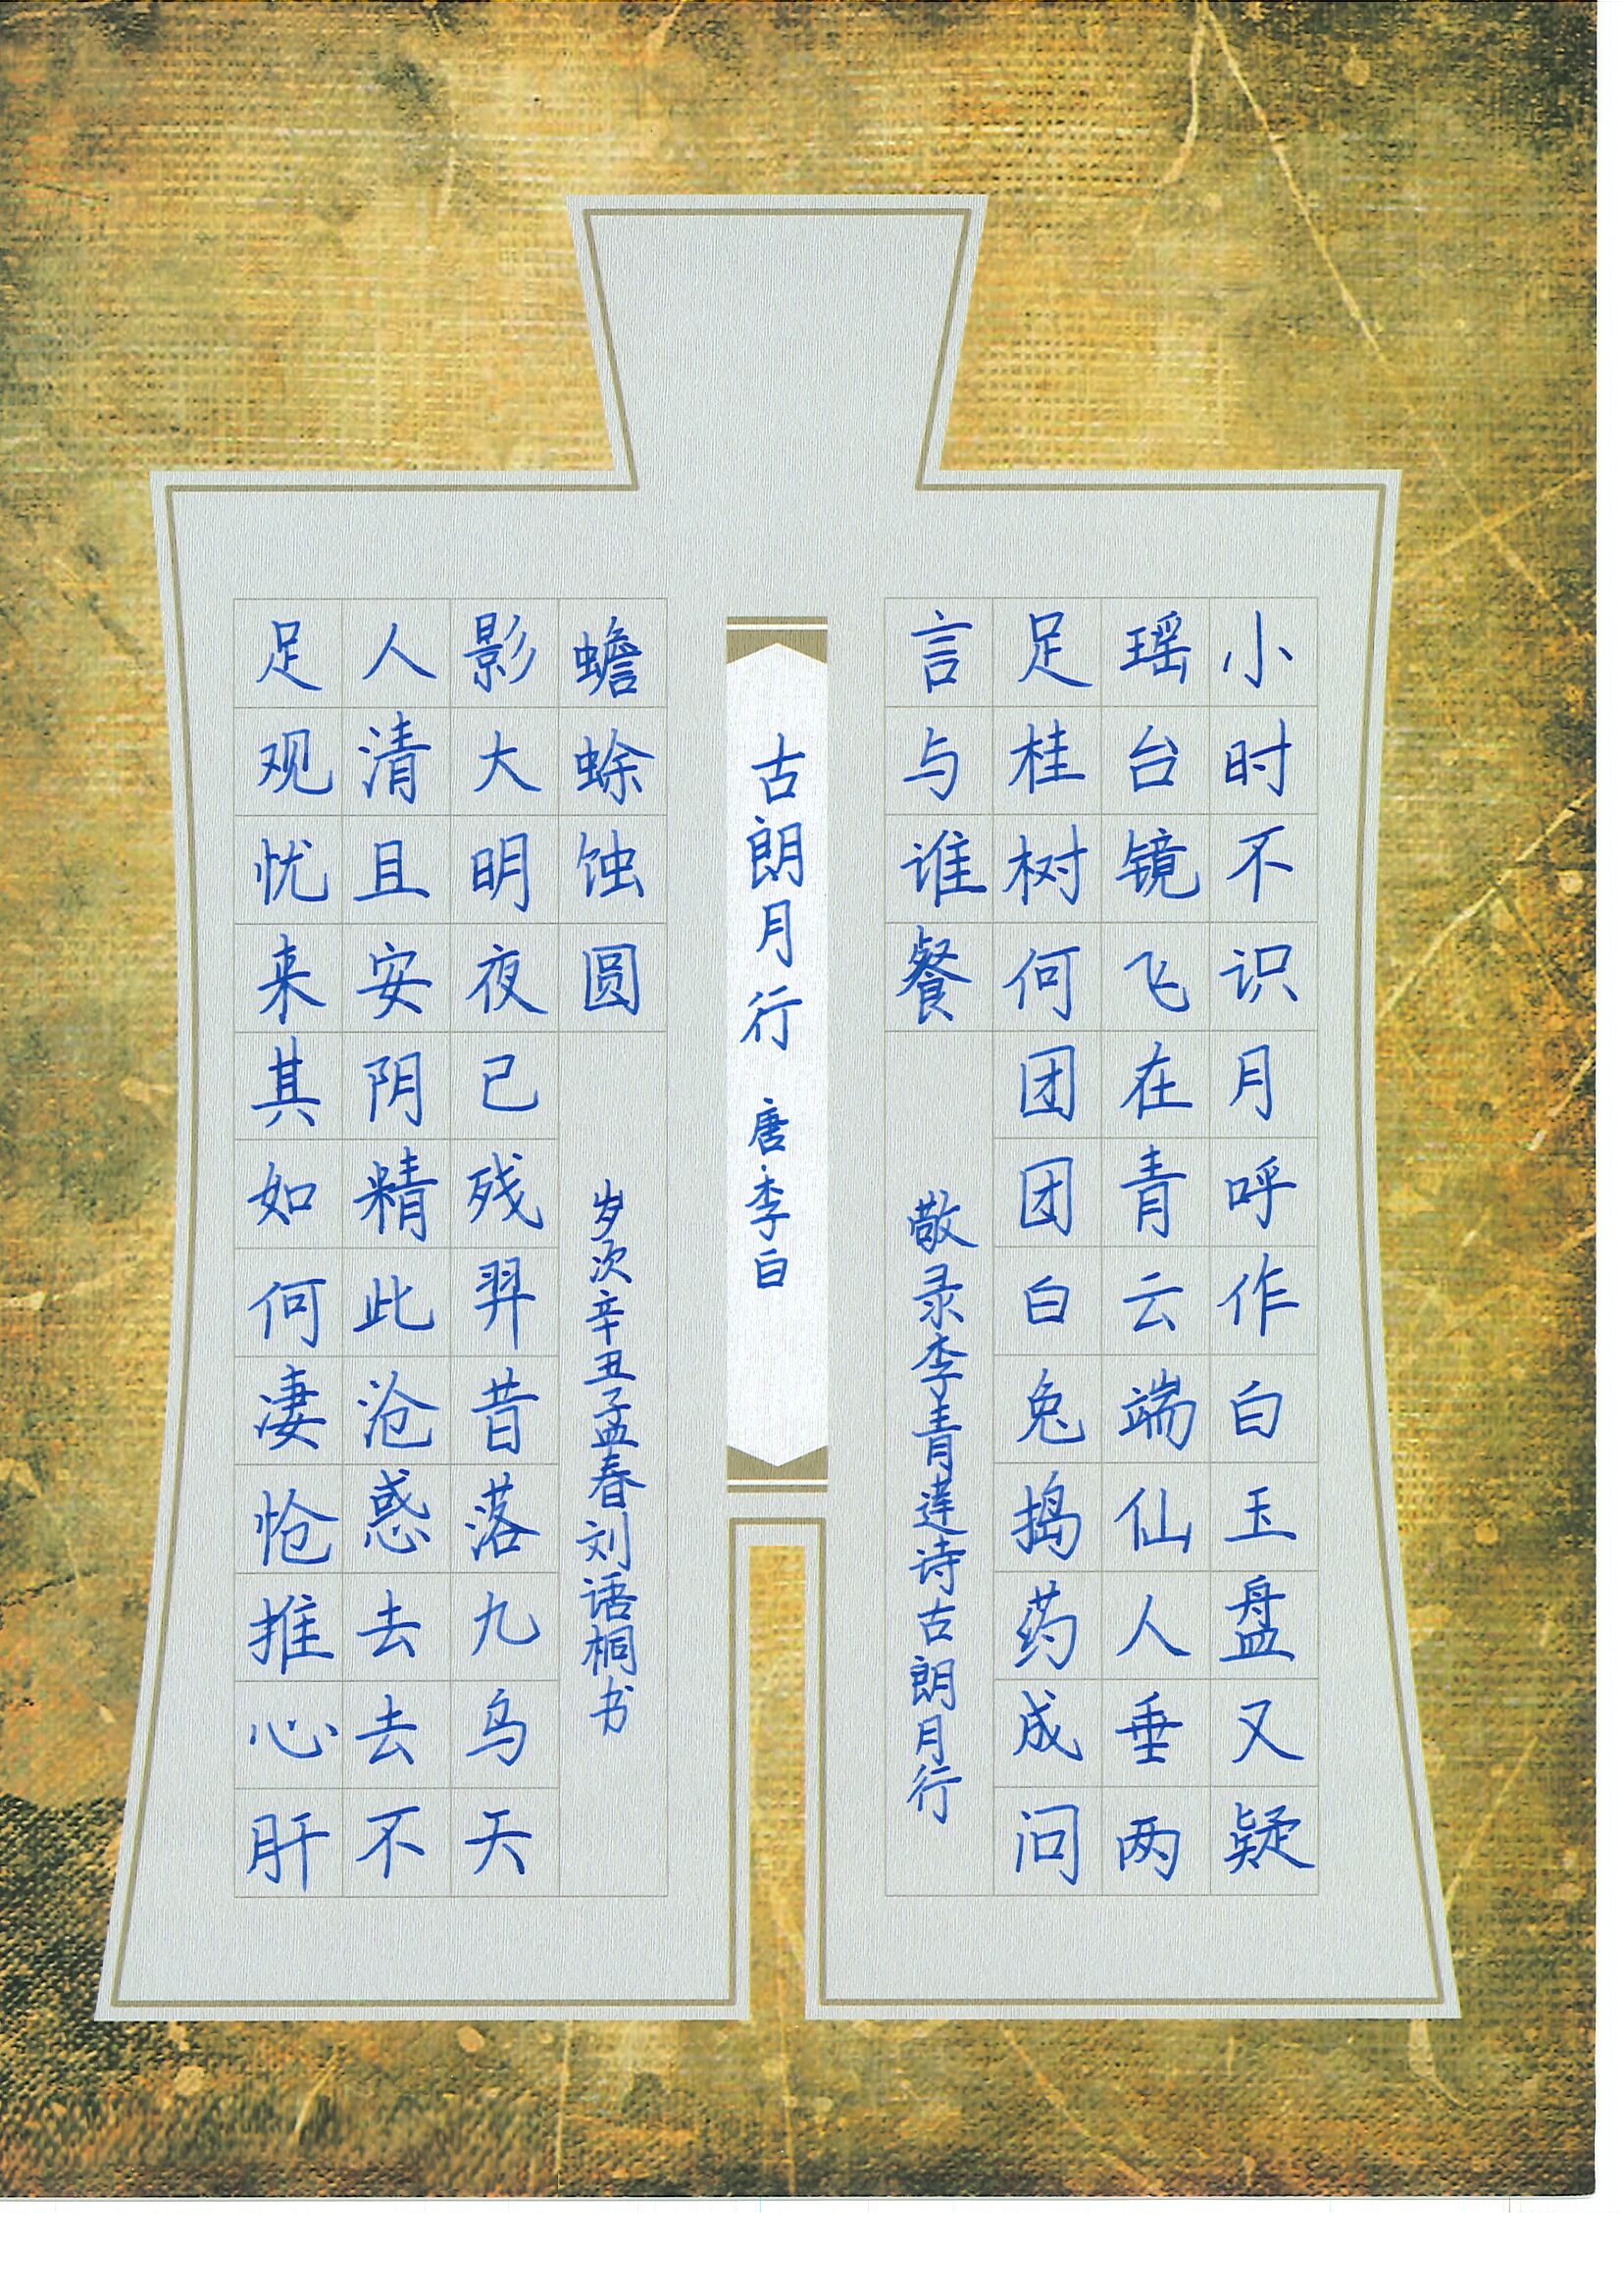 小时不识月呼作白玉盘又疑
瑶台镜飞在青云端仙人垂两
足桂树何团团白兔捣药成问
言与谁餐
敬录李青莲诗古朗月行
古朗月行 唐李白
蟾蜍蚀圆
岁次辛丑孟春刘语桐书
影大明夜已残羿昔落九乌天
人清且安阴精此沧惑去去不
足观忧来其如何凄怆推心肝